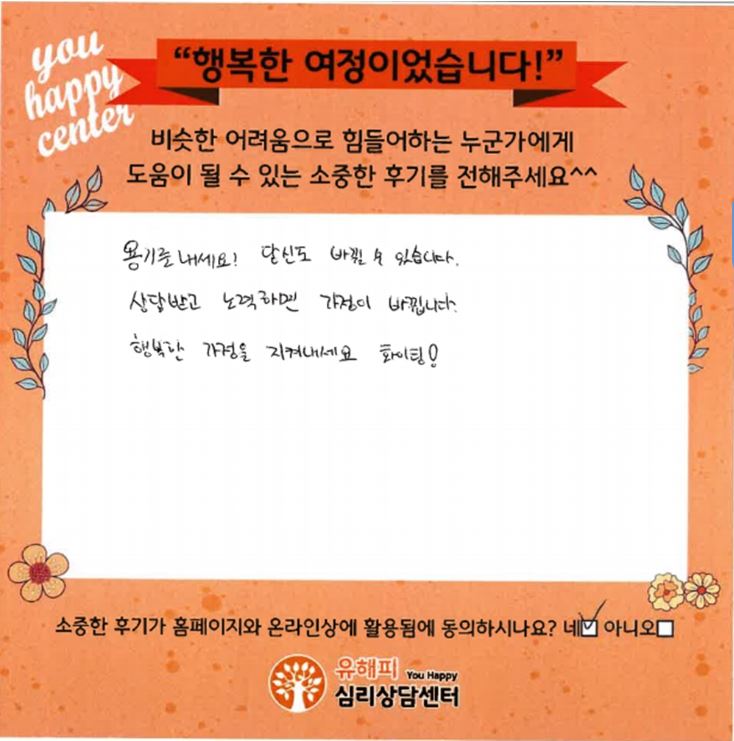 you
happy
center
“행복한 여정이었습니다!”
비슷한 어려움으로 힘들어하는 누군가에게
도움이 될 수 있는 소중한 후기를 전해주세요^^
용기를 내세요! 당신도 바뀔 수 있습니다.
상담받고 노력하면 가정이 바뀝니다.
행복한 가정을 지켜내세요 화이팅!
소중한 후기가 홈페이지와 온라인상에 활용됨에 동의하시나요? 네☑ 아니오☐
유해피 You Happy
심리상담센터